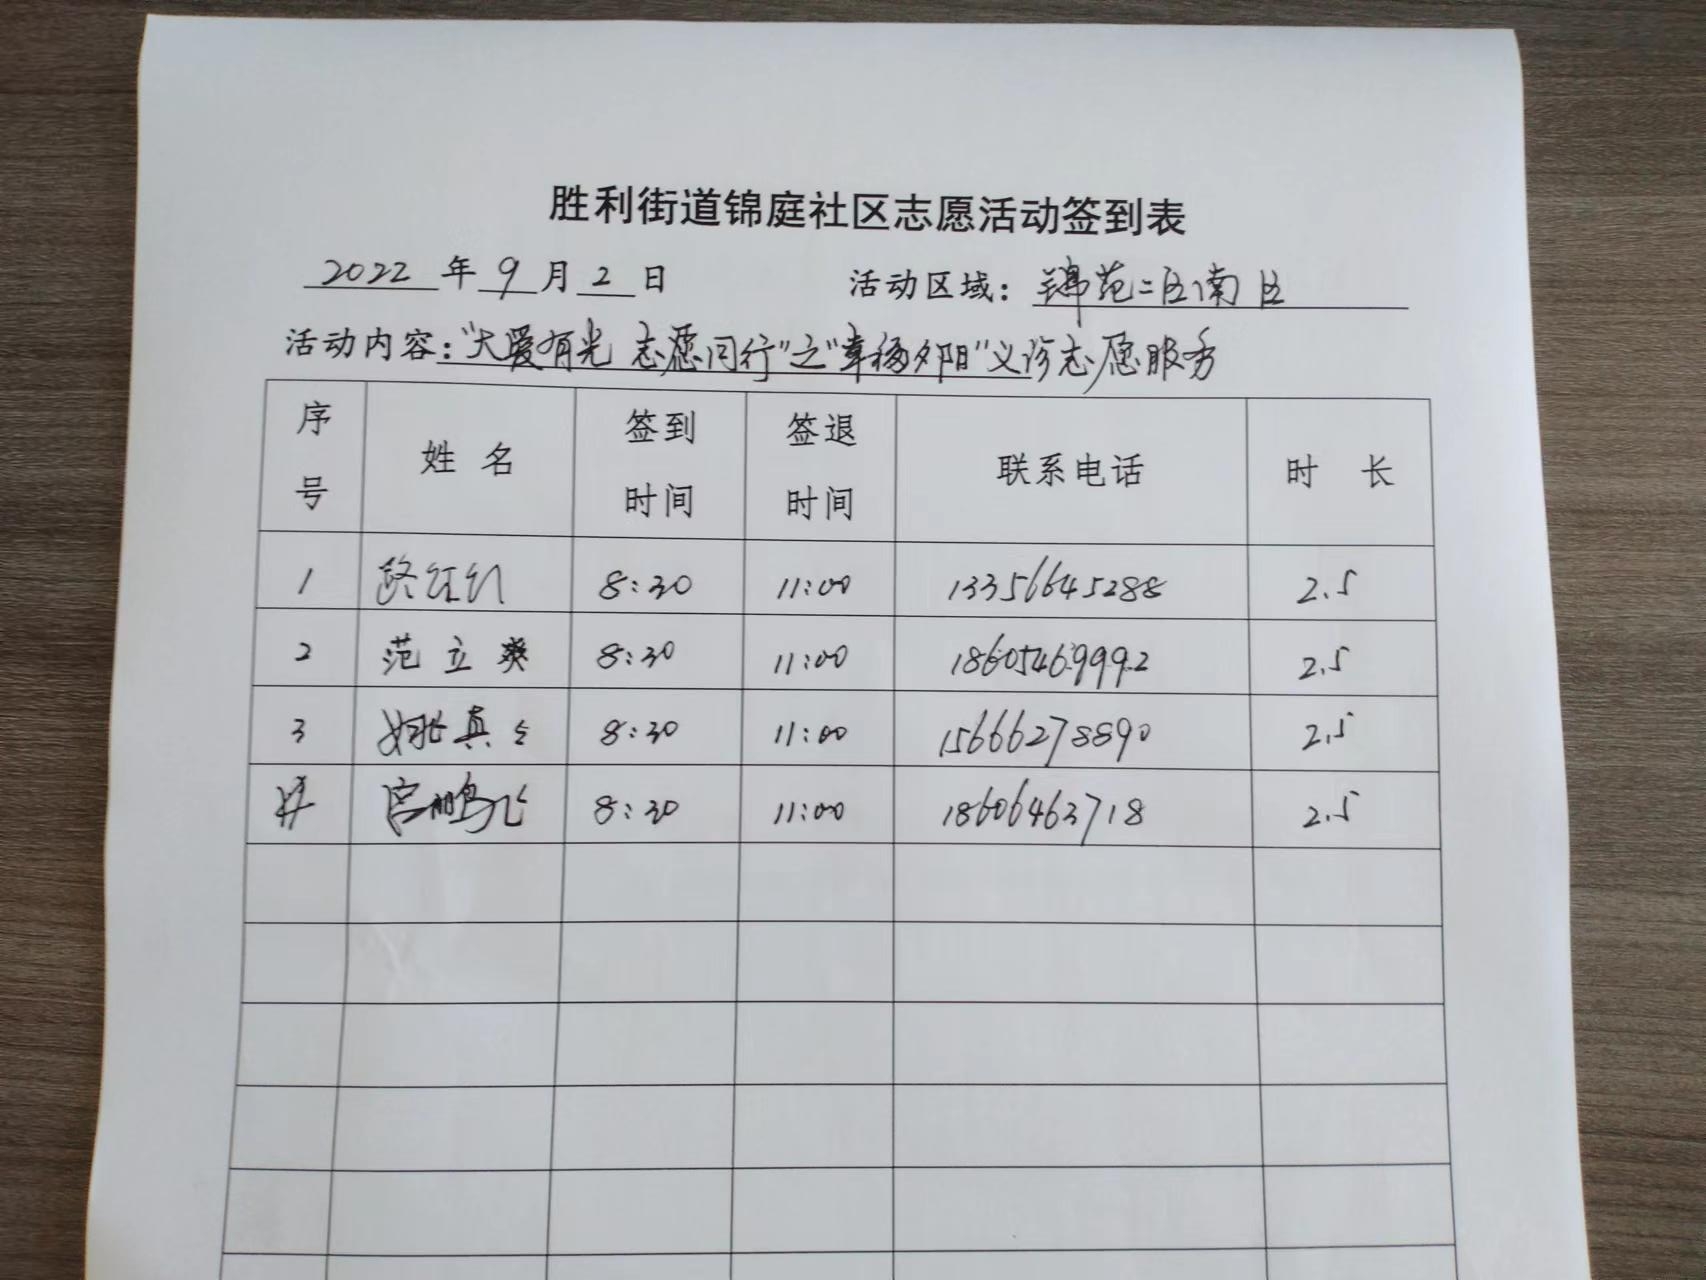 胜利街道锦庭社区志愿活动签到表
2022 年 9 月 2 日 活动区域：锦苑二区南区
活动内容："大爱有光 志愿同行"之"幸福夕阳"义诊志愿服务
序号 姓名 签到时间 签退时间 联系电话 时长
1 路红红 8:30 11:00 13356645288 2.5
2 范立爽 8:30 11:00 18605469992 2.5
3 姚真 8:30 11:00 15666278890 2.5
宫鹏飞 8:30 11:00 18606463718 2.5